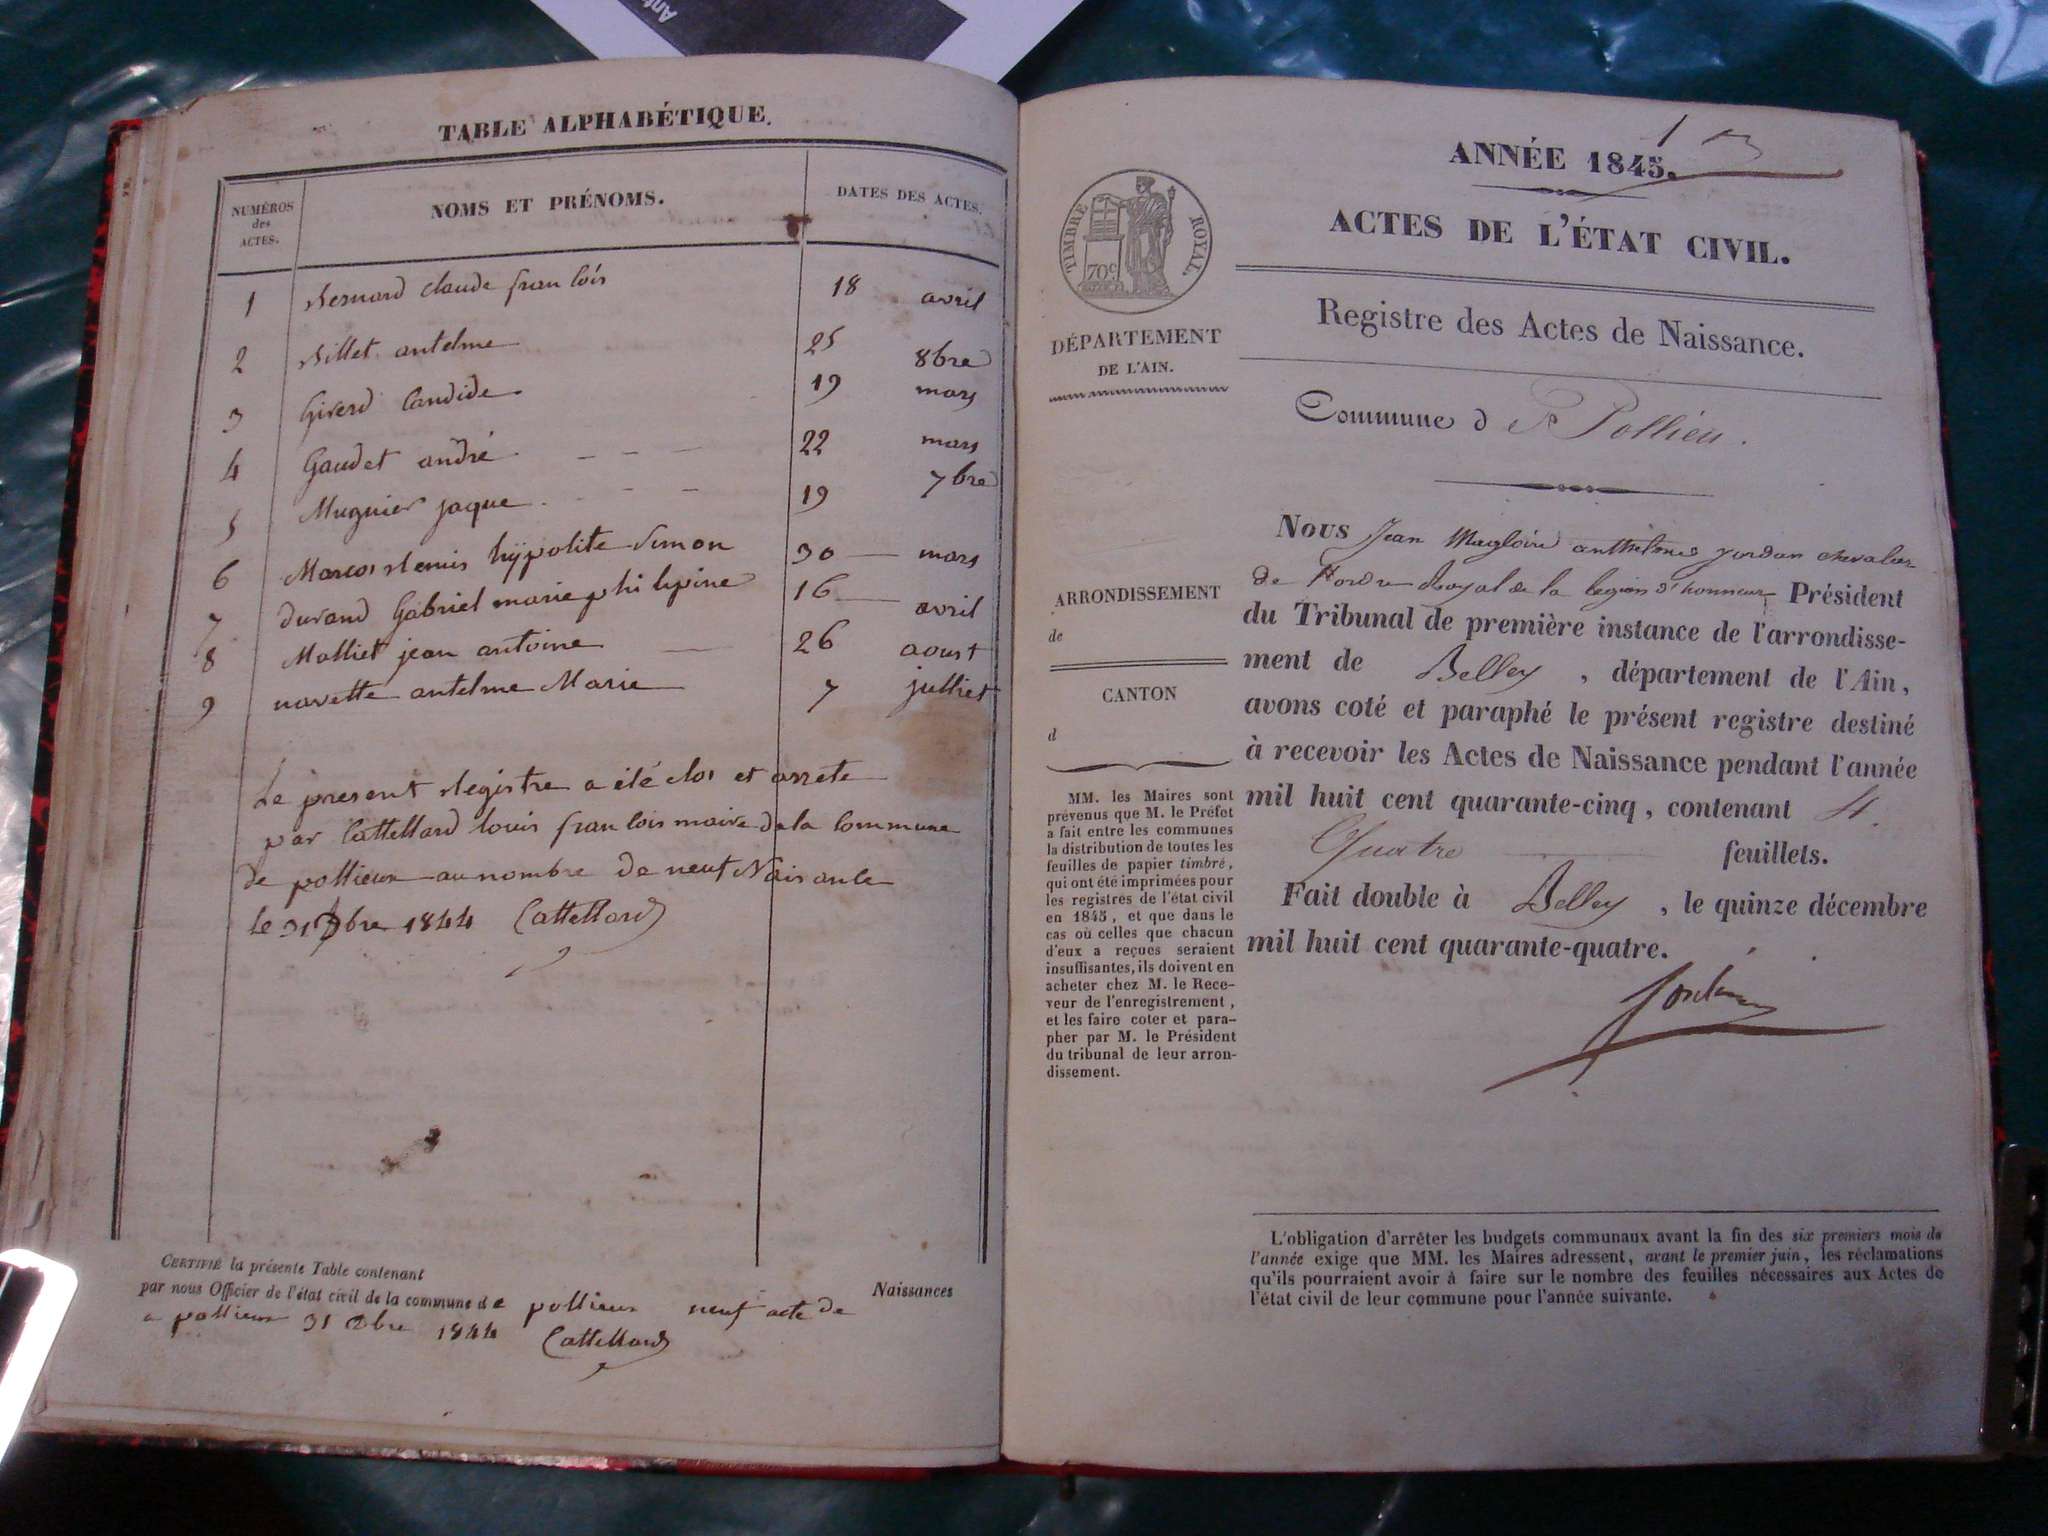 TABLE ALPHABÉTIQUE.
NUMÉROS des ACTES. NOMS ET PRÉNOMS. DATES DES ACTES.
1 Bernard claude francois 18 avril
2 Billet antelme 25 8bre
3 Girerd Candide 19 mars
4 Gaudet andré 22 mars
5 Mugnier jaque 19 7bre
6 Marcos remis hÿpolite Simon 30 mars
7 durand Gabriel marie philipine 16 avril
8 Malliet jean antoine 26 aoust
9 navette antelme Marie 7 julliet
Le present Registre a été clos et arrete
par Cattelland louis francois maire de la Commune
de pollieux au nombre de neuf Naisance
le 31 bre 1844 Cattelland
CERTIFIÉ la présente Table contenant Naissances
par nous Officier de l'état civil de la commune de pollieux neuf acte de
a pollieux 31 bre 1844 Cattelland
1
ANNÉE 1845.
ACTES DE L'ÉTAT CIVIL.
TIMBRE ROYAL.
70c
DÉPARTEMENT
DE L'AIN.
Registre des Actes de Naissance.
Commune d Pollieu.
ARRONDISSEMENT
de
CANTON
d
MM. les Maires sont
prévenus que M. le Préfet
a fait entre les communes
la distribution de toutes les
feuilles de papier timbré,
qui ont été imprimées pour
les registres de l'état civil
en 1845, et que dans le
cas où celles que chacun
d'eux a reçues seraient
insuffisantes, ils doivent en
acheter chez M. le Rece-
veur de l'enregistrement,
et les faire coter et para-
pher par M. le Président
du tribunal de leur arron-
dissement.
Nous Jean Magloire anthelme jordan chevalier
de l'ordre Royal de la legion d'honneur Président
du Tribunal de première instance de l'arrondisse-
ment de Belley, département de l'Ain,
avons coté et paraphé le présent registre destiné
à recevoir les Actes de Naissance pendant l'année
mil huit cent quarante-cinq, contenant 4.
Quatre feuillets.
Fait double à Belley, le quinze décembre
mil huit cent quarante-quatre.
Jordan
L'obligation d'arrêter les budgets communaux avant la fin des six premiers mois de
l'année exige que MM. les Maires adressent, avant le premier juin, les réclamations
qu'ils pourraient avoir à faire sur le nombre des feuilles nécessaires aux Actes de
l'état civil de leur commune pour l'année suivante.